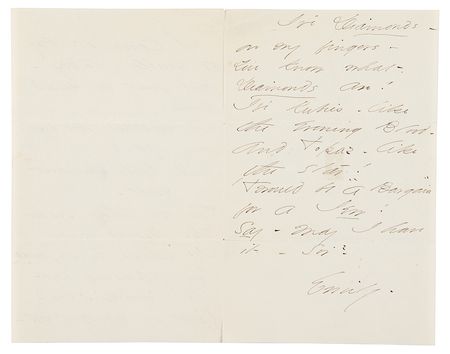 I've Diamonds -
on my fingers -
You know what -
Diamonds are!
I've Rubies - like
the Evening Blood -
And Topaz - like
the star!
'Twould be "a Bargain"
for a Jew!
Say - may I have
it - Sir?
Emily -